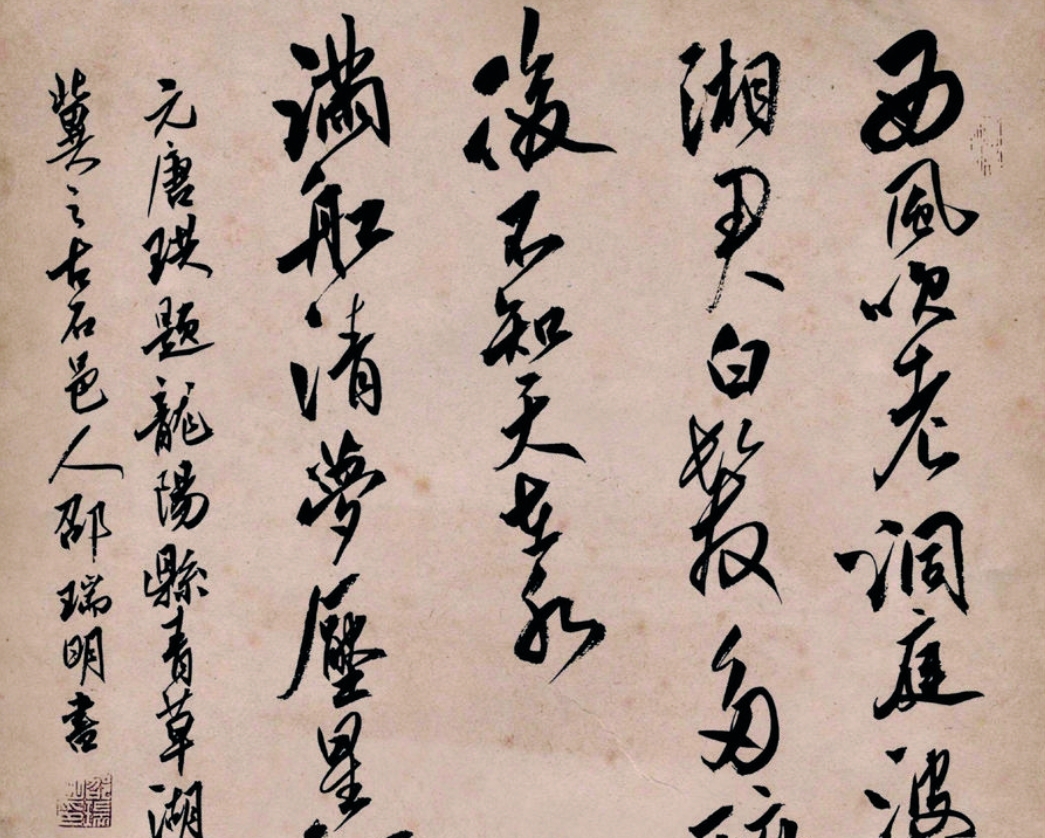 西風吹老洞庭波
湘君白髮多
後不知天在水
滿舡清夢壓星
元唐珙題龍陽縣青草湖
冀之古石邑人邵瑞明書